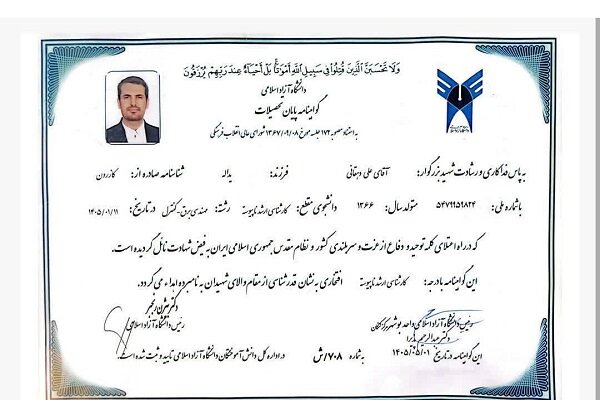 وَلَا تَحْسَبَنَّ الَّذِینَ قُتِلُوا فِی سَبِیلِ اللَّهِ أَمْوَاتاً بَلْ أَحْیَاءٌ عِنْدَ رَبِّهِمْ یُرْزَقُونَ
دانشگاه آزاد اسلامی
گواهینامه پایان تحصیلات
به استناد مصوبه ۱۷۴ جلسه مورخ ۱۳۶۷/۰۹/۰۸ شورای عالی انقلاب فرهنگی
به پاس فداکاری و رشادت شهید بزرگوار: آقای علی دهقانی فرزند: یداله شناسنامه صادره از: کازرون
با شماره ملی: متولد سال: ۱۳۶۶ دانشجوی مقطع: کارشناسی ارشد ناپیوسته رشته: مهندسی برق-کنترل در تاریخ: ۱۴۰۵/۰۱/۱۱
که در راه اعتلای کلمه توحید و دفاع از عزت و سربلندی کشور و نظام مقدس جمهوری اسلامی ایران به فیض شهادت نائل گردیده است.
این گواهینامه با درجه: کارشناسی ارشد ناپیوسته افتخاری به نشان قدرشناسی از مقام والای شهیدان به نامبرده اهداء می گردد.
رئیس دانشگاه آزاد اسلامی واحد بوشهر
دکتر عبدالرحیم
دکتر بیژن رنجبر
رئیس دانشگاه آزاد اسلامی
این گواهینامه در تاریخ ۱۴۰۵/۰۵/۰۱ به شماره ۷۰۸/ش در اداره کل دانش آموختگان دانشگاه آزاد اسلامی تایید و ثبت شده است.